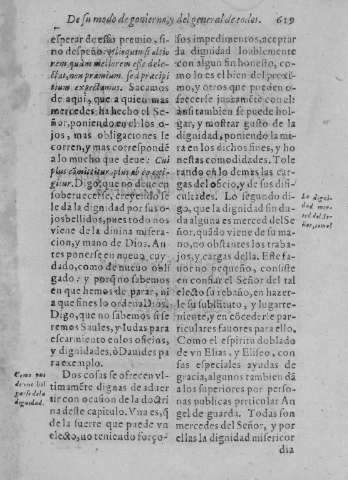 De su modo de govierno, y del general de todos. 619
esperar de esso premio, si-
no despeño.
Sacamos
de aqui, que a quien mas
mercedes ha hecho el Se-
ñor, poniendo en el los o-
jos, mas obligaciones le
corren, y mas correspondẽ
a lo mucho que deue: Cui
plus cõmittitur, plus ab eo exi-
gitur. Digo, que no deue en
soberuecerse, creyendo se
le da la dignidad por sus o-
jos bellidos, pues todo nos
viene de la diuina misera-
cion, y mano de Dios. An-
tes ponerse en nueuo cuy-
dado, como de nueuo obli-
gado: y porque no sabemos
en que hemos de parar, ni
a que fines lo ordena Dios.
Digo, que no sabemos si se
remos Saules, y Iudas para
escarmiento en los oficios,
y dignidades, ò Dauides pa
ra exemplo.
Dos cosas se ofrecen vl-
timamẽte dignas de aduer
tir con ocasion de la doctri
na deste capitulo. Vna es, q̃
de la suerte que puede vn
electo, no teniendo forço-
Como pue
de vno hol
garse de la
dignidad.
sos impedimentos, aceptar
la dignidad loablemente
con algun fin honesto, co-
mo lo es el bien del proxi-
mo, y otros que pueden o-
frecerse juntamẽte con el:
ansi tambien se puede hol-
gar, y mostrar gusto de la
dignidad, poniendo la mi-
ra en los dichos fines, y ho
nestas comodidades. Tole
rando en lo demas las car-
gas del oficio, y de sus difi-
cultades. Lo segundo di-
go, que la dignidad sin du-
da alguna es merced del Se
ñor, quãdo viene de su ma-
no, no obstantes los traba-
jos, y cargas della. Este fa-
uor no pequeño, consiste
en confiar el Señor del tal
electo su rebaño, en hazer-
le su substituto, y lugarte-
niente, y en cõcederle par-
ticulares fauores para ello.
Como el espiritu doblado
de vn Elias, y Eliseo, con
sus especiales ayudas de
gracia, algunos tambien dã
a los superiores por perso-
nas publicas particular An
gel de guarda. Todas son
mercedes del Señor, y por
ellas la dignidad misericor
dia
La digni-
dad mer-
ced del Se-
ñor, como?